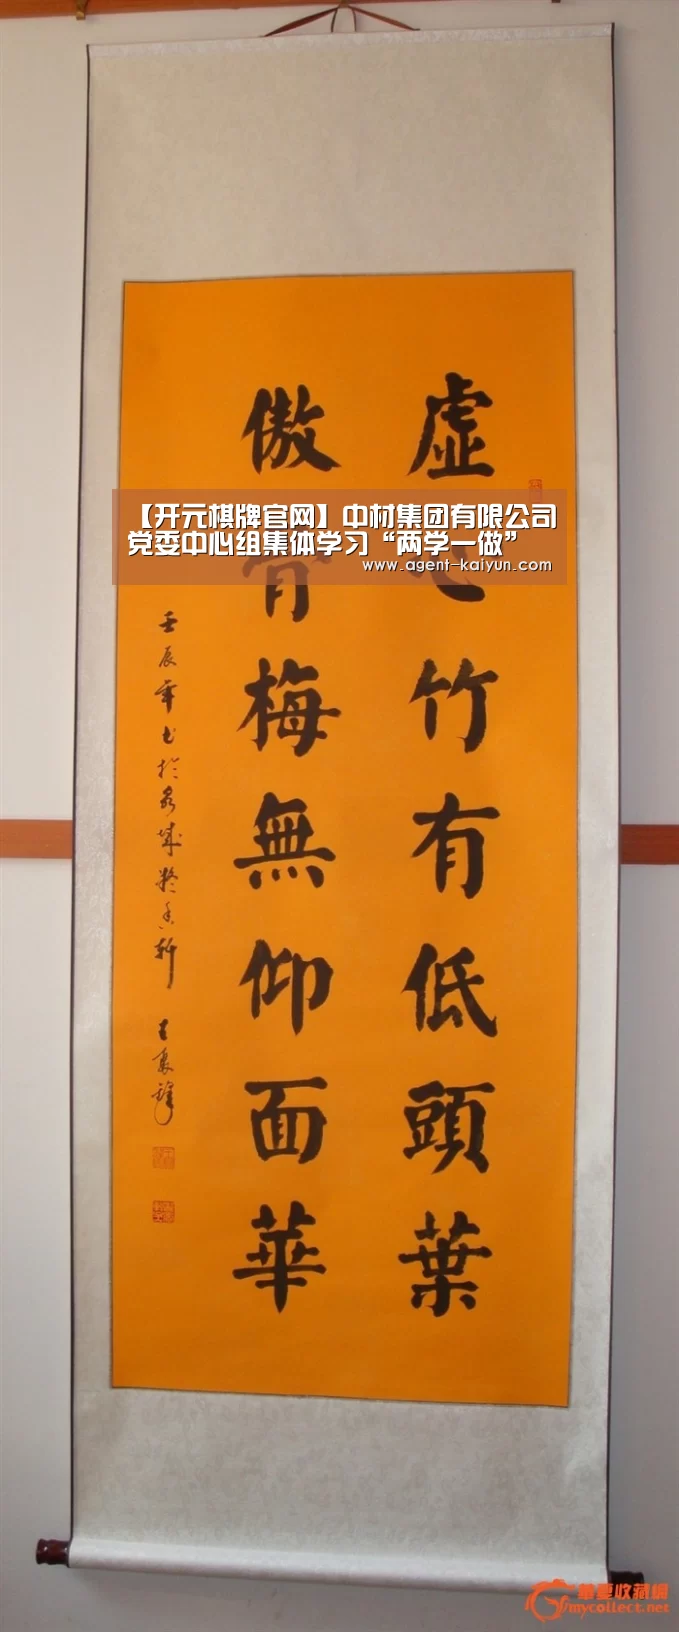 虛心竹有低頭葉
傲骨梅無仰面華
壬辰年书於泉城
【开元棋牌官网】中材集团有限公司
党委中心组集体学习“两学一做”
www.agent-kaiyun.com
華夏收藏網
mycollect.net